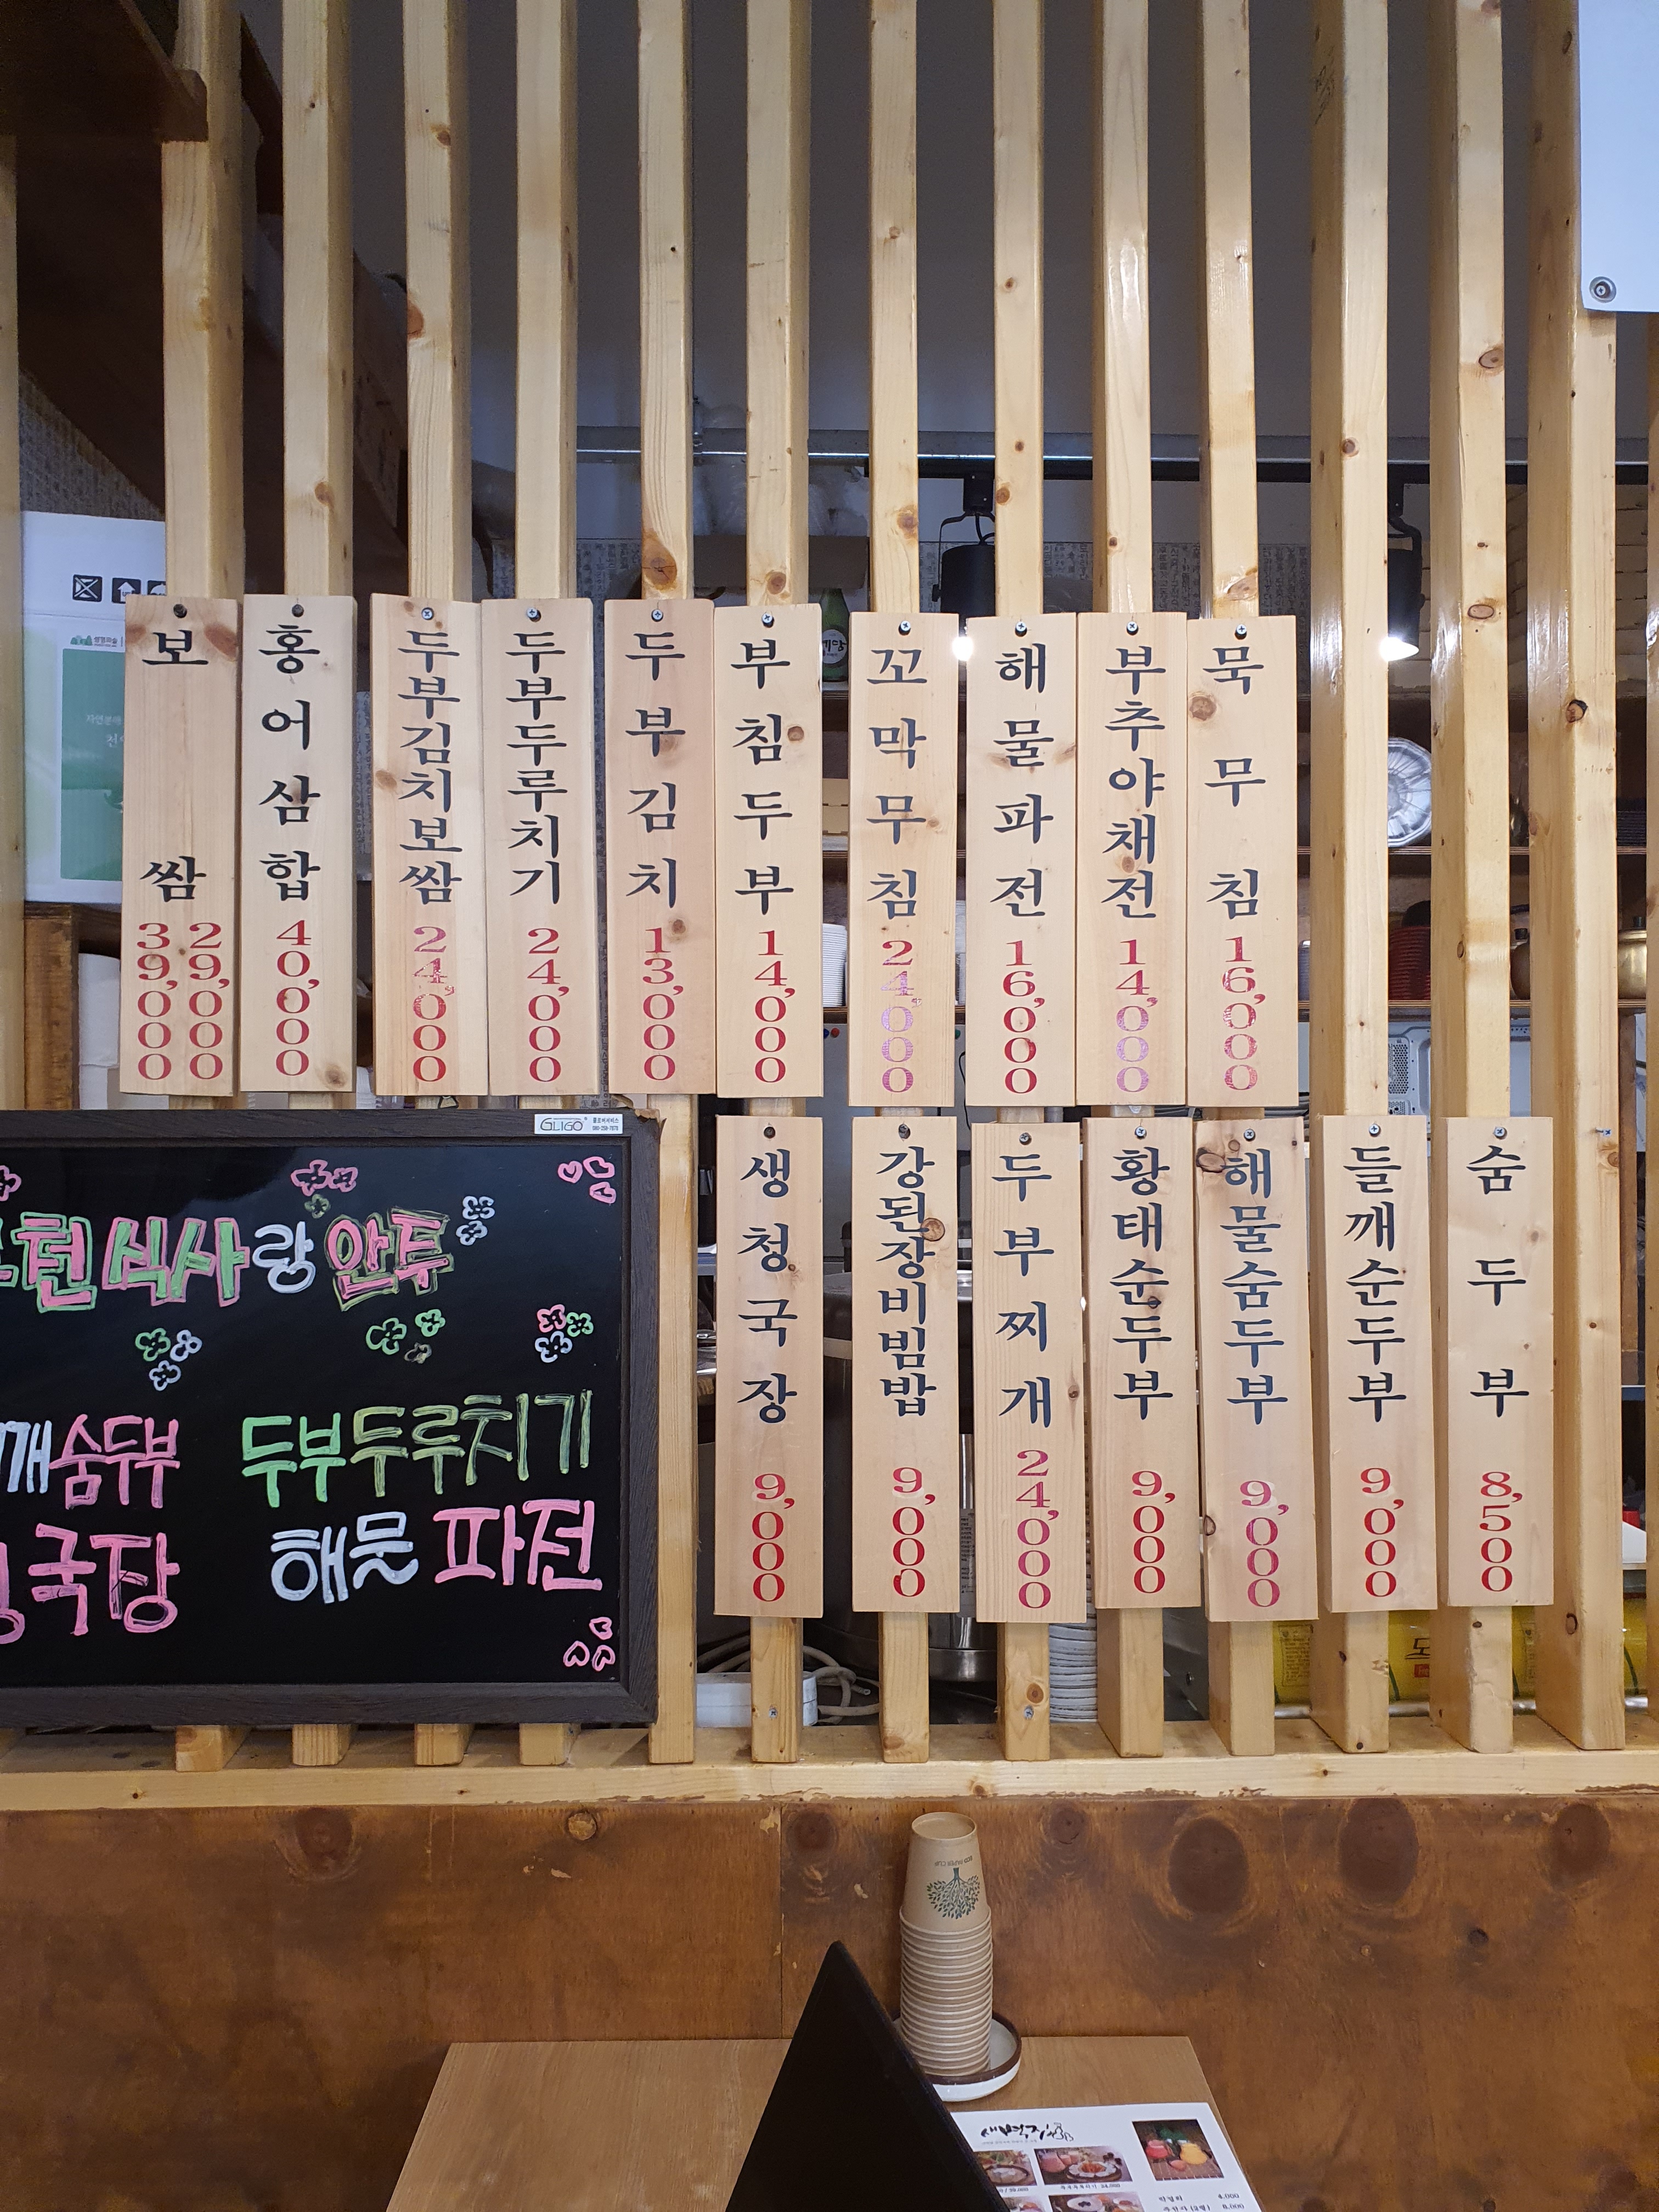 보쌈
39,000
29,000
홍어삼합
40,000
두부김치보쌈
24,000
두부두루치기
24,000
두부김치
13,000
부침두부
14,000
꼬막무침
24,000
해물파전
16,000
부추야채전
14,000
묵무침
16,000
생청국장
9,000
강된장비빔밥
9,000
두부찌개
24,000
황태순두부
9,000
해물숨두부
9,000
들깨순두부
9,000
숨두부
8,500
GLIGO
천 식사랑 안투
깨숨두부
두부두루치기
국당
해물 파전
새벽집
4,000